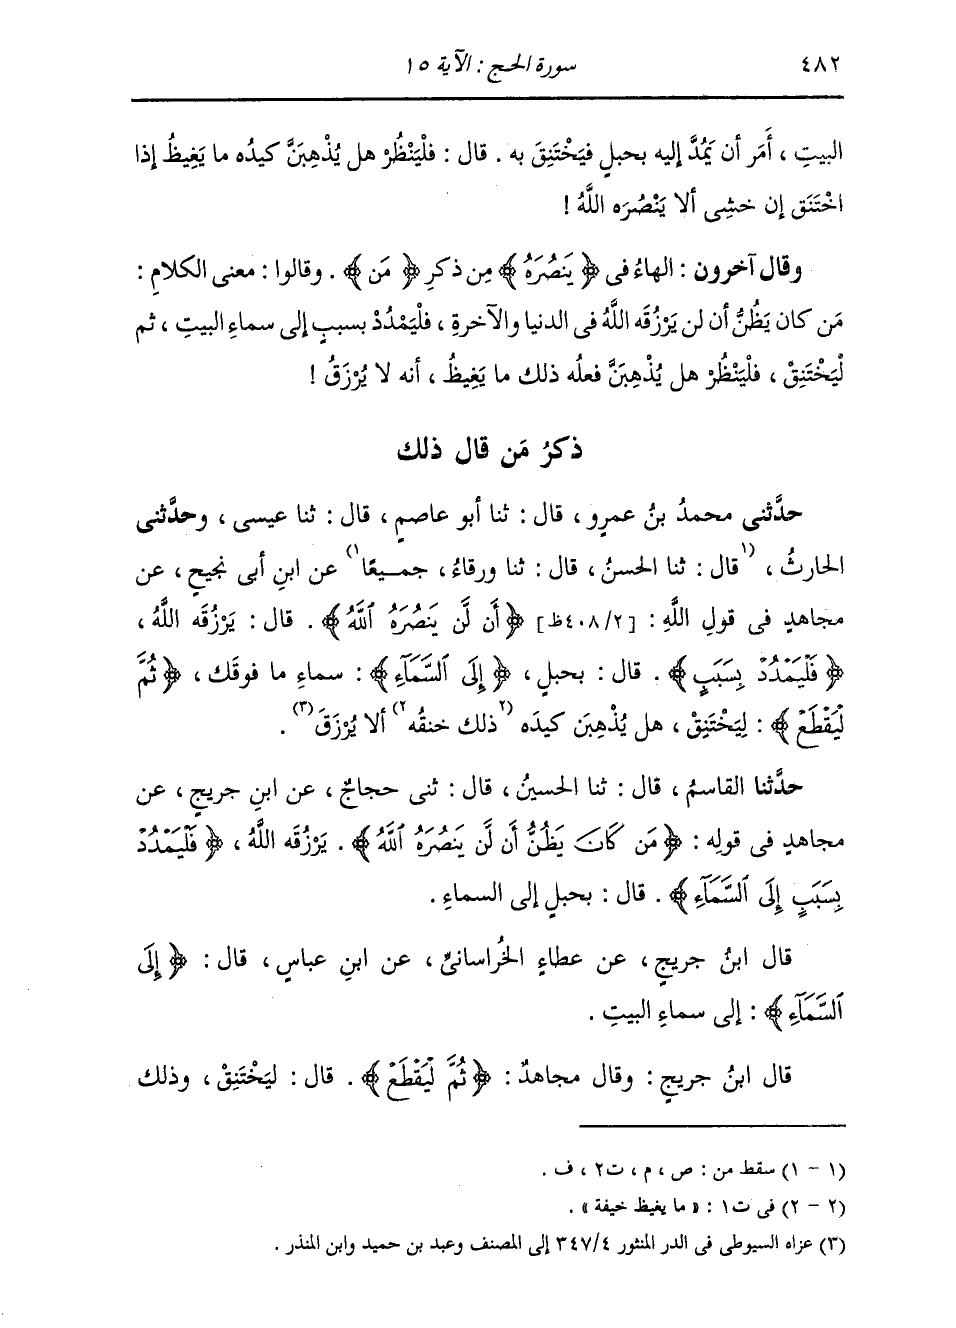 ٤٨٢ سورة الحج : الآية ١٥
البيتِ ، أَمَر أن يَمُدَّ إليه بحبلٍ فيَخْتَنِقَ به . قال : فلْيَنْظُرْ هل يُذْهِبَنَّ كيدُه ما يَغِيظُ إذا
اخْتَنَق إن خشِى ألا يَنْصُرَه اللَّهُ !
وقال آخرون : الهاءُ فى ﴿ يَنصُرَهُ ﴾ مِن ذكرِ ﴿ مَن ﴾ . وقالوا : معنى الكلامِ :
مَن كان يَظُنُّ أن لن يَرْزُقَه اللَّهُ فى الدنيا والآخرةِ ، فلْيَمْدُدْ بسببٍ إلى سماءِ البيتِ ، ثم
لْيَخْتَنِقْ ، فلْيَنْظُرْ هل يُذْهِبَنَّ فعلُه ذلك ما يَغِيظُ ، أنه لا يُرْزَقُ !
ذكرُ مَن قال ذلك
حدَّثنى محمدُ بنُ عمرٍو ، قال : ثنا أبو عاصمٍ ، قال : ثنا عيسى ، وحدَّثنى
الحارثُ ، (١قال : ثنا الحسنُ ، قال : ثنا ورقاءُ ، جميعًا١) عن ابنِ أبى نجيحٍ ، عن
مجاهدٍ فى قولِ اللَّهِ : [٤٠٨/٢ظ] ﴿ أَن لَّن يَنصُرَهُ ٱللَّهُ ﴾ . قال : يَرْزُقَه اللَّهُ ،
﴿ فَلْيَمْدُدْ بِسَبَبٍ ﴾ . قال : بحبلٍ ، ﴿ إِلَى ٱلسَّمَآءِ ﴾ : سماءِ ما فوقَك ، ﴿ ثُمَّ
لْيَقْطَعْ ﴾ : لِيَخْتَنِقْ ، هل يُذْهِبَن كيدَه (٢ذلك خنقُه٢) ألا يُرْزَقَ(٣) .
حدَّثنا القاسمُ ، قال : ثنا الحسينُ ، قال : ثنى حجاجٌ ، عن ابنِ جريجٍ ، عن
مجاهدٍ فى قولِه : ﴿ مَن كَانَ يَظُنُّ أَن لَّن يَنصُرَهُ ٱللَّهُ ﴾ . يَرْزُقَه اللَّهُ ، ﴿ فَلْيَمْدُدْ
بِسَبَبٍ إِلَى ٱلسَّمَآءِ ﴾ . قال : بحبلٍ إلى السماءِ .
قال ابنُ جريجٍ ، عن عطاءٍ الخُراسانىِّ ، عن ابنِ عباسٍ ، قال : ﴿ إِلَى
ٱلسَّمَآءِ ﴾ : إلى سماءِ البيتِ .
قال ابنُ جريجٍ : وقال مجاهدٌ : ﴿ ثُمَّ لْيَقْطَعْ ﴾ . قال : ليَخْتَنِقْ ، وذلك
(١ - ١) سقط من : ص ، م ، ت٢ ، ف .
(٢ - ٢) فى ت١ : « ما يغيظ خيفة » .
(٣) عزاه السيوطى فى الدر المنثور ٣٤٧/٤ إلى المصنف وعبد بن حميد وابن المنذر .